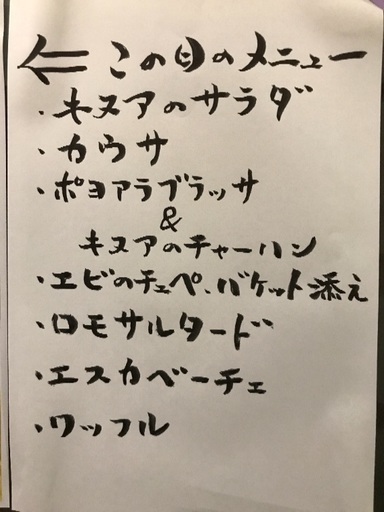 ⇐ この日のメニュー
・キヌアのサラダ
・カウサ
・ポヨアラブラッサ
&
キヌアのチャーハン
・エビのチュペ、バケット添え
・ロモサルタード
・エスカベーチェ
・ワッフル